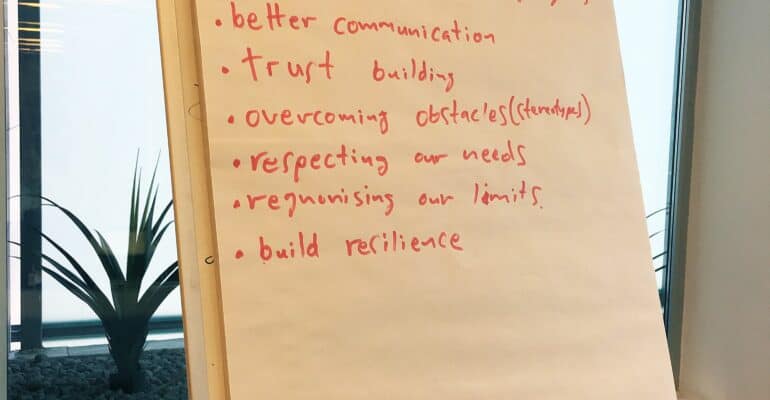 • better communication
• trust building
• overcoming obstacles (stereotypes)
• respecting our needs
• regnonising our limits.
• build recilience